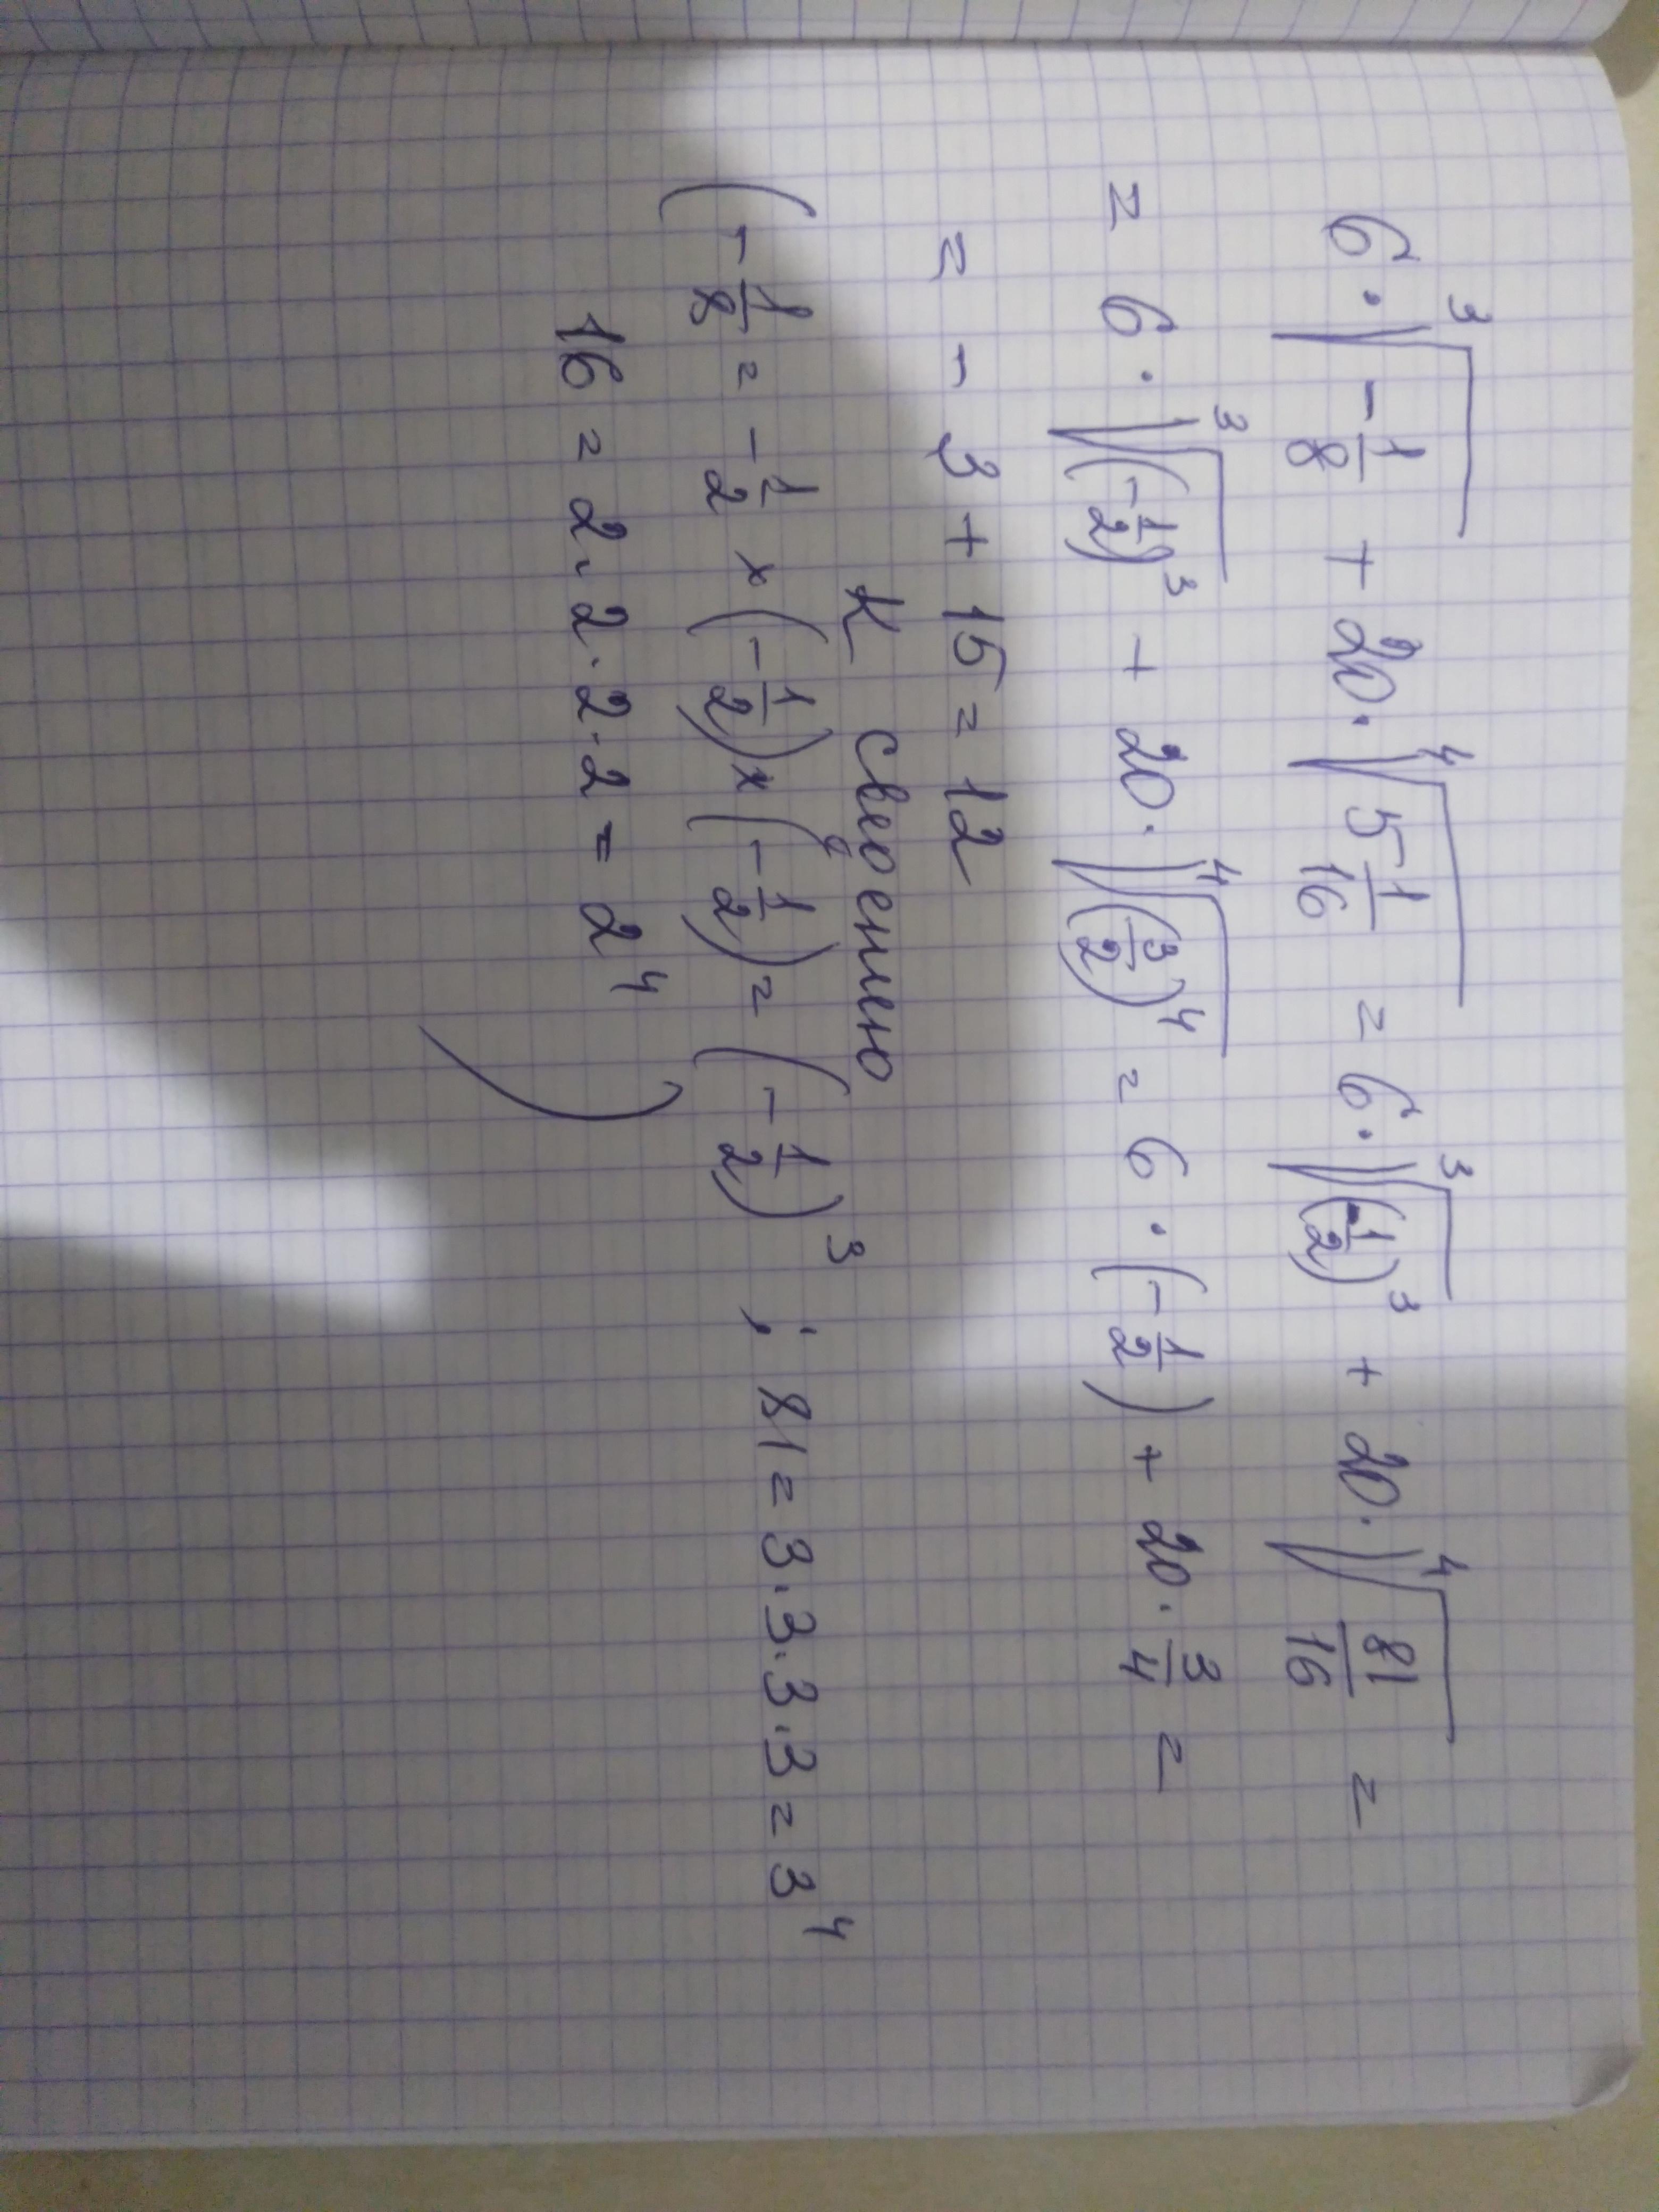 6 · ∛(-1/8) + 20 · ∜(5 1/16) = 6 · ∛((-1/2)³) + 20 · ∜(81/16) =
= 6 · ∛((-1/2)³) + 20 · ∜((3/2)⁴) = 6 · (-1/2) + 20 · 3/4 =
= - 3 + 15 = 12
К сведению
(-1/8 = -1/2 × (-1/2) × (-1/2) = (-1/2)³ ; 81 = 3·3·3·3 = 3⁴
16 = 2·2·2·2 = 2⁴ )